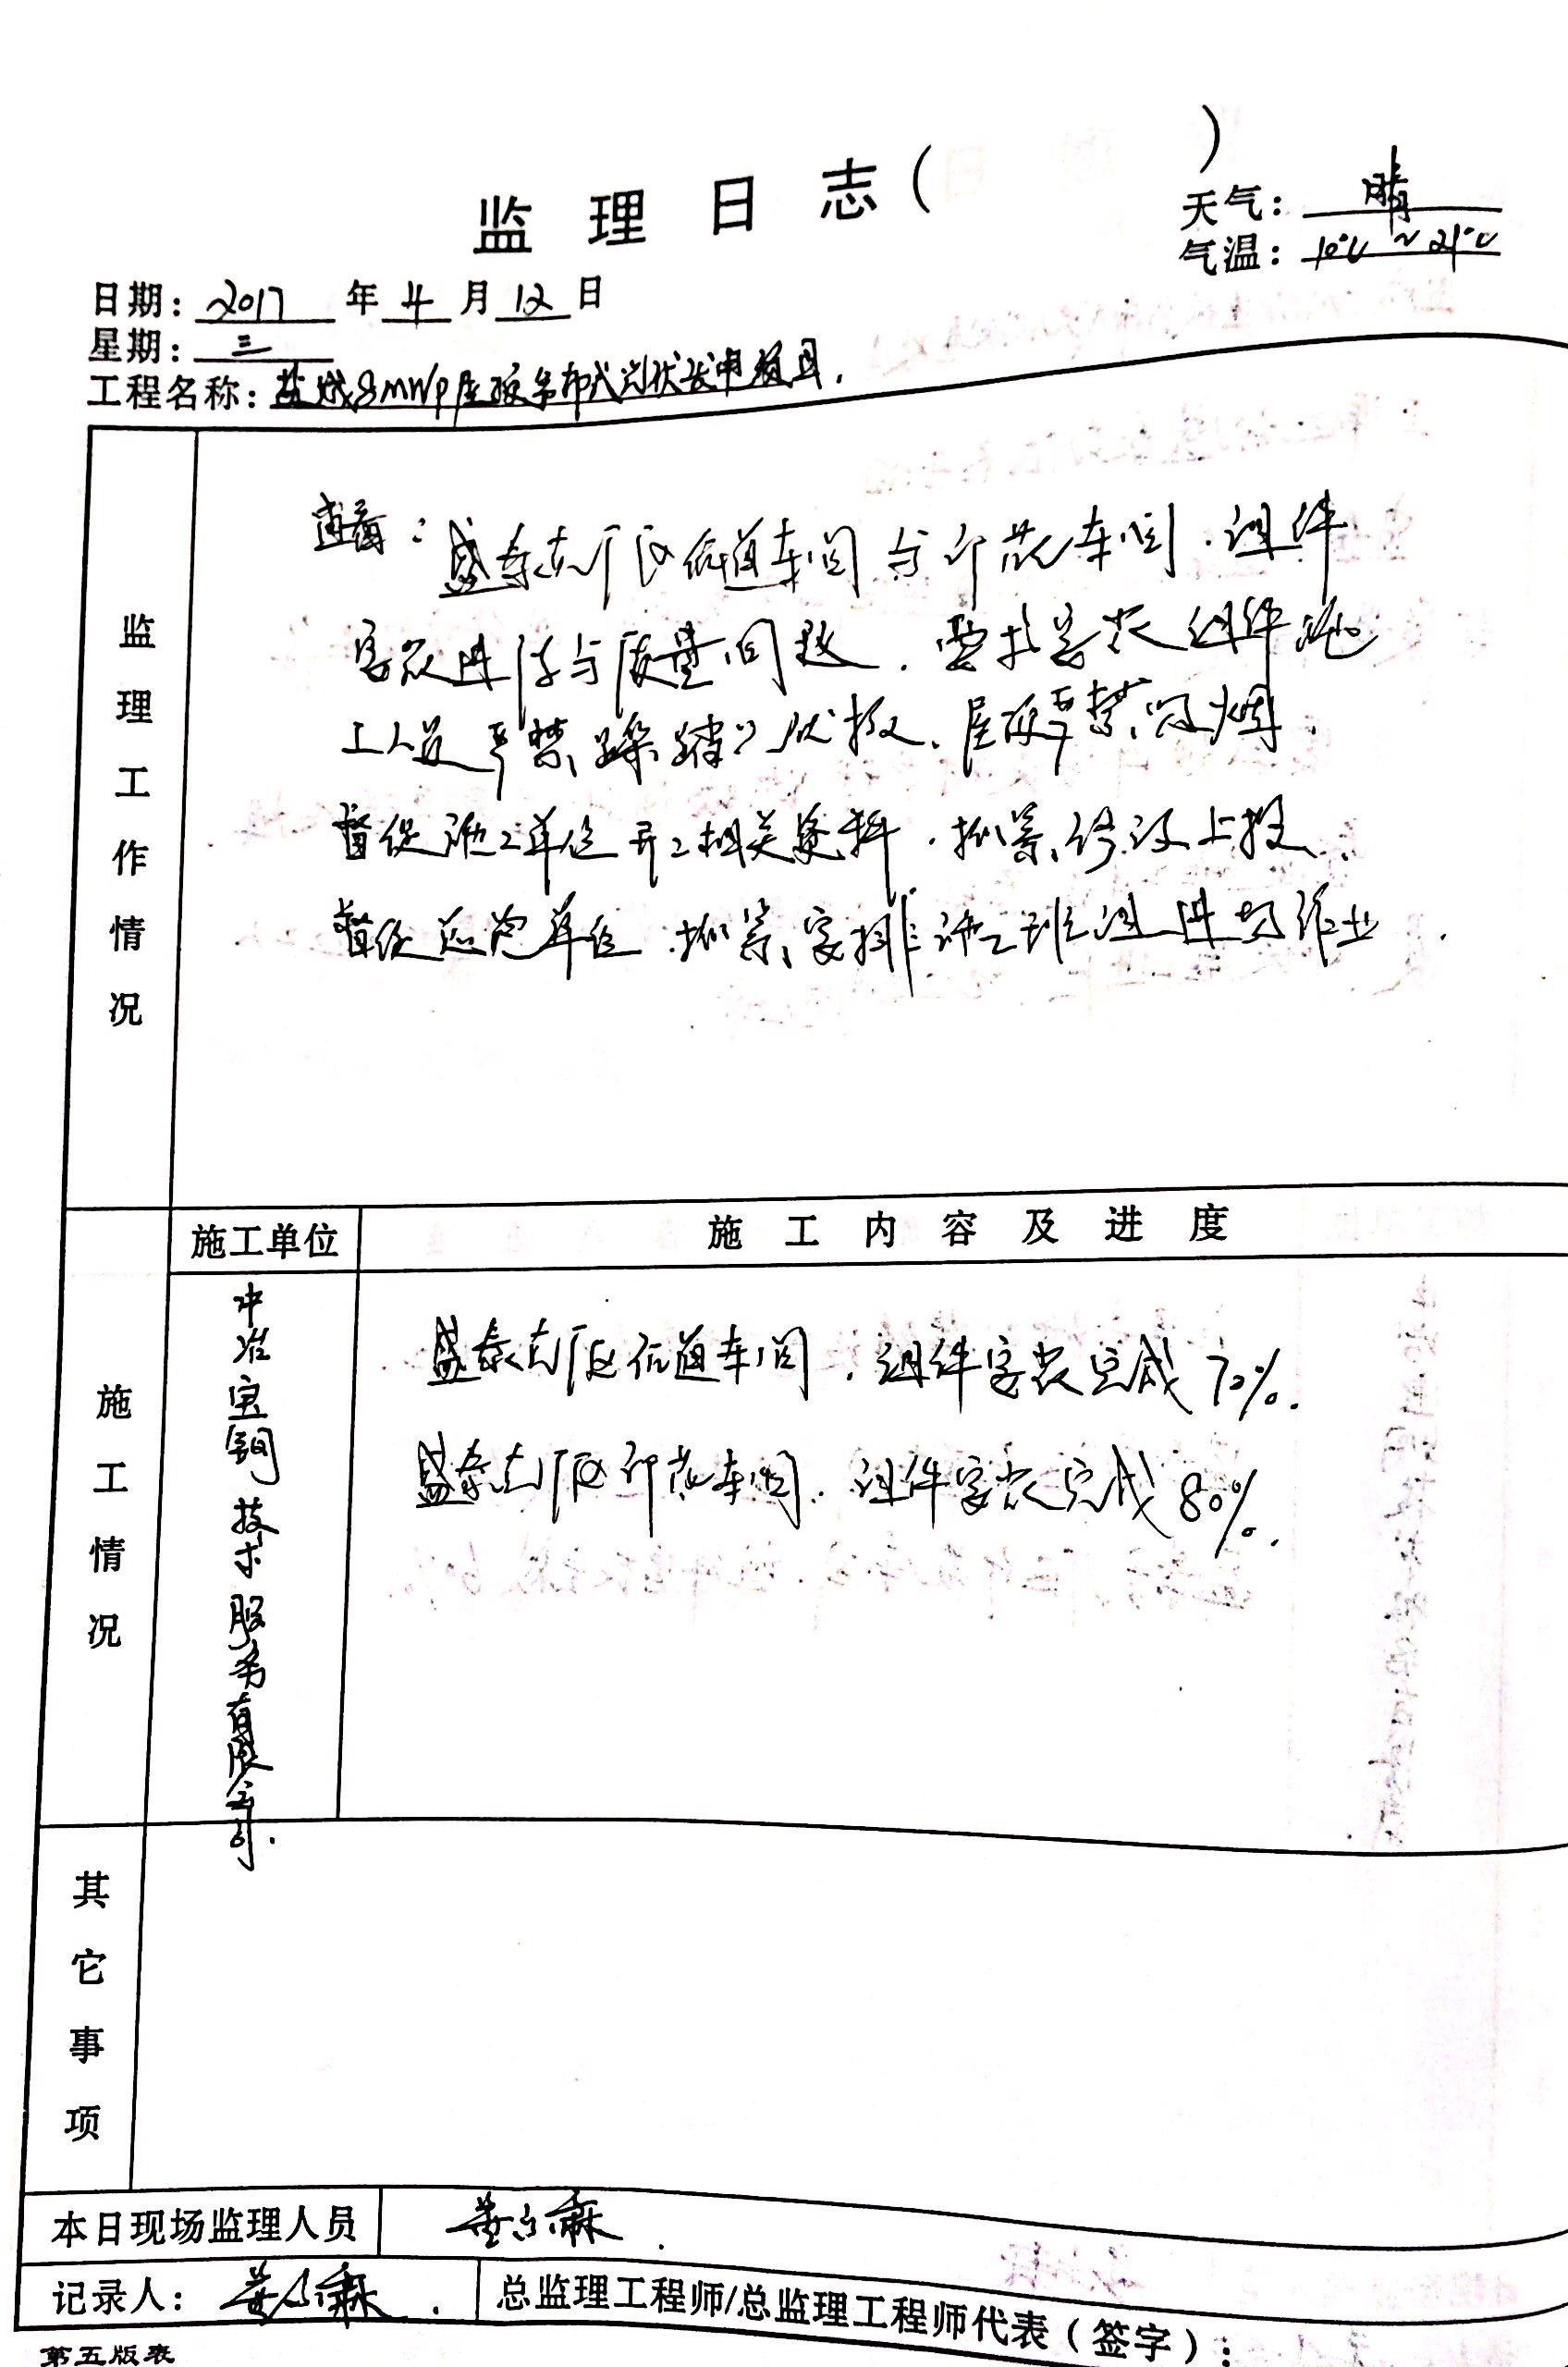 监理日志(　　)
天气：晴
气温：10℃~21℃
日期：2017年4月12日
星期：三
工程名称：盐城8MWP屋顶分布式光伏发电项目.
监理工作情况
查看：盛泰东厂区后道车间与印花车间.组件
安装进行与质量问题.要求安装组件施
工人员严禁踩踏光伏板、屋顶严禁吸烟.
督促施工单位开工相关资料.抓紧修改上报.
督促总包单位.抓紧安排施工班组进场作业.
施工情况
施工单位
施工内容及进度
中冶宝钢技术服务有限公司.
盛泰东厂区后道车间.组件安装完成70%.
盛泰东厂区印花车间.组件安装完成80%.
其它事项
本日现场监理人员
记录人：
总监理工程师/总监理工程师代表(签字)：
第五版表